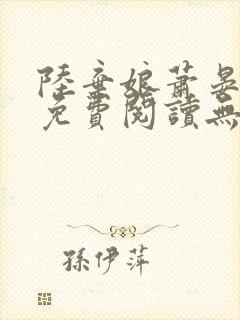 陸棄娘蕭晏
免費閱讀無
孫伊萍